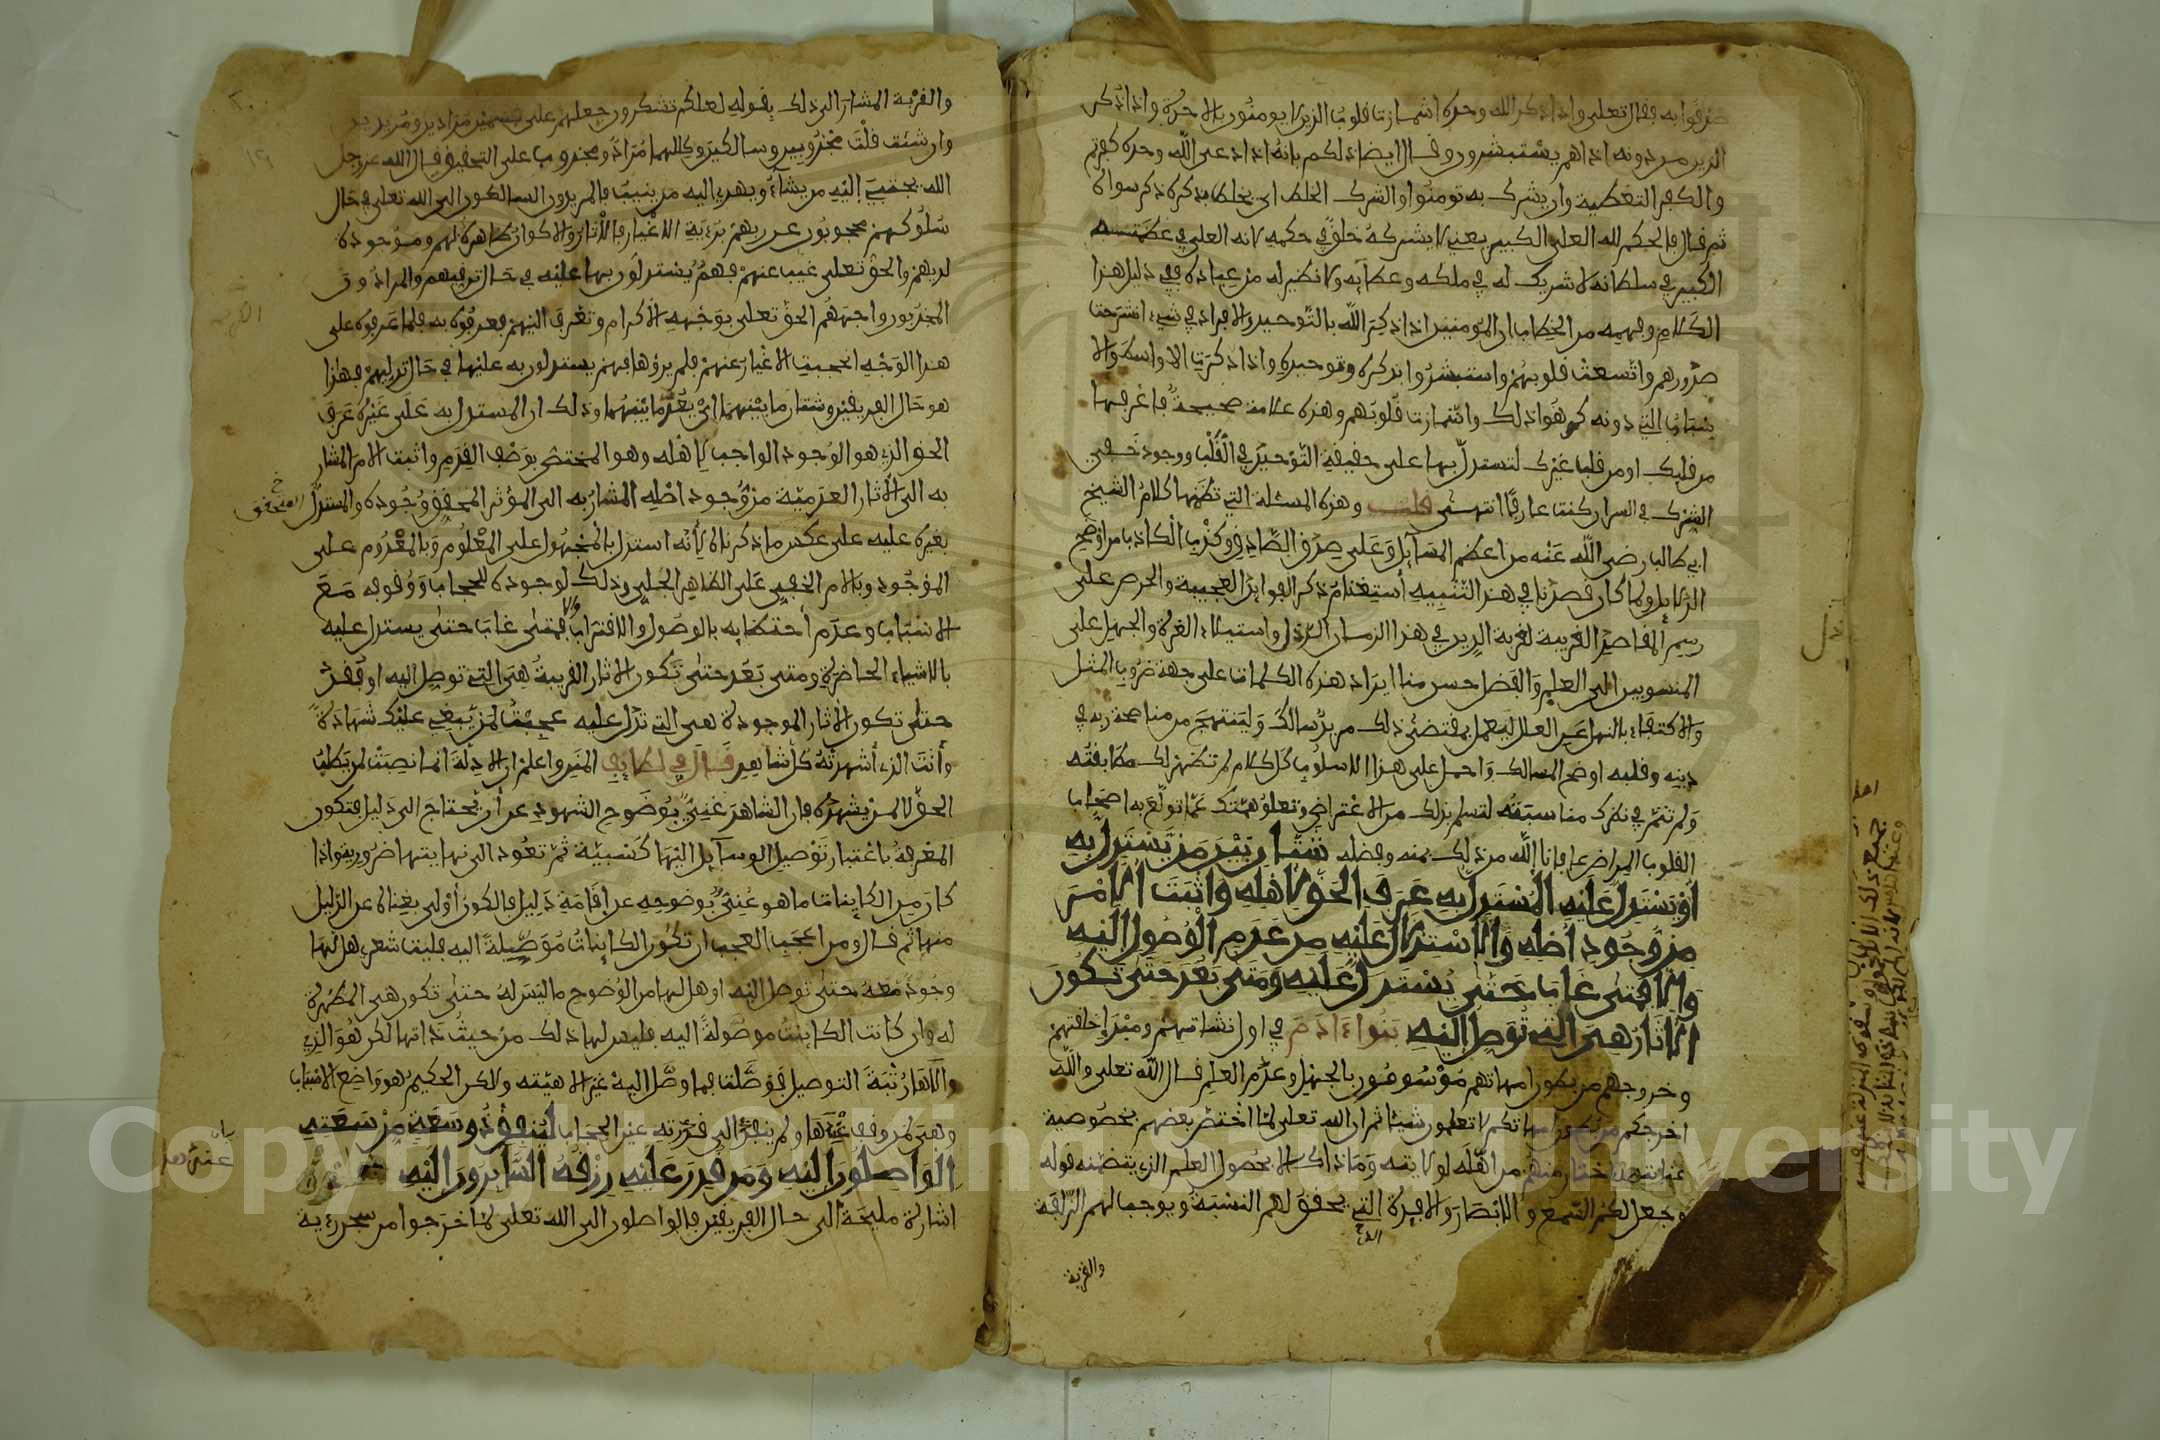 صدقوا به فقال تعلى واذا ذكر الله وحده اشمازت قلوب الذين لا يومنون بالاخرة واذا ذكر
الذين من دونه اذا هم يستبشرون وقال ايضا ذلكم بانه اذا دعى الله وحده كفرتم
والكفر التغطية وان يشرك به تومنوا والشرك الخلط اى يخلط بذكره ذكر سواه
ثم قال فالحكم لله العلى الكبير يعنى لا يشركه خلق فى حكمه لانه العلى فى عظمته
الكبير فى سلطانه لا شريك له فى ملكه وعطائه ولا نظير له من عباده ففى دليل هذا
الكلام وفهمه من الخطاب ان المومنين اذا ذكر الله بالتوحيد والافراد فى شىء انشرحت
صدورهم واتسعت قلوبهم واستبشروا بذكره وتوحيده واذا ذكرت الاواسط والا
سباب التى دونه كرهوا ذلك واشمازت قلوبهم وهذه علامة صحيحة فاعرفها
من قلبك او من قلب غيرك لتستدل بها على حقيقة التوحيد فى القلب ووجود خفى
الشرك فى السر ان كنت عارفا انتهى قلت وهذه المسئلة التى تضمنها كلام الشيخ
ابى طالب رضى الله عنه من اعظم المسايل وعلى صدق الصادق وكذب الكاذب من اوضح
الدلايل ولما كان قصدنا فى هذا التنبيه استغنام ذكر الفوايد العجيبة والحرص على
رسم المقاصد الغريبة لغربة الدين فى هذا الزمان الرذل واستيلاء الغرة والجهل على
المنسوبين الى العلم والفضل حسن منا ايراد هذه الكلمات على جهة ضروب المثل
والاكتفاء بالنهل عن العلل ليعمل بمقتضى ذلك من بر سالك ولينتهج من مناصحة ربه فى
دينه وقلبه اوضح المسالك واحمل على هذا الاسلوب كل كلام لم تظهر لك مطابقته
ولم تتم فى نظرك مناسبته لتسلم بذلك من الاعتراض وتعلو همتك عما تولع به اصحاب
القلوب المراض عافانا الله من ذلك بمنه وفضله شتان بين من يستدل به
او يستدل عليه المستدل به عرف الحق لاهله واثبت الامر
من وجود اصله والاستدلال عليه من عدم الوصول اليه
والا فمتى غاب حتى يستدل عليه ومتى بعد حتى تكون
الاثار هى التى توصل اليه بنوا ءادم فى اول نشاتهم ومبدإ خلقتهم
وخروجهم من بطون امهاتهم موسومون بالجهل وعدم العلم قال الله تعلى والله
اخرجكم من بطون امهاتكم لا تعلمون شيئا ثم ان الله تعلى لما اختص بعضهم بخصوصية
عنايته اختار منهم من اهله لولايته وما ذاك الا بحصول العلم الذى يتضمنه قوله
وجعل لكم السمع والابصار والافيدة التى يحقق لهم النسبة ويوجب لهم الزلفة
والقربة
والقربة المشار الى ذلك بقوله لعلكم تشكرون جعلهم على قسمين مرادين ومريدين
وان شئت قلت مجذوبين وسالكين وكلاهما مراد ومجذوب على التحقيق قال الله عز وجل
الله يجتبى اليه من يشاء ويهدى اليه من ينيب فالمريدون السالكون الى الله تعلى فى حال
سلوكهم محجوبون عن ربهم برءية الاغيار فالاثار والاكوان ظاهرة لهم وموجودة
لديهم والحق تعلى غيب عنهم فهم يستدلون بها عليه فى حال ترقيهم والمرادون
المجذوبون واجههم الحق تعلى بوجهه الاكرام وتعرف اليهم فعرفوه به فلما عرفوه على
هذا الوجه انحجبت الاغيار عنهم فلم يروها فهم يستدلون به عليها فى حال تدليهم فهذا
هو حال الفريقين وشتان ما بينهما اى بعد ما بينهما وذلك ان المستدل به على غيره عرف
الحق الذى هو الوجود الواجب لاهله وهو المختص بوصف القدم واثبت الامر المشار
به الى الاثار العدمية من وجود اصله المشار به الى المؤثر المحقق وجوده والمستدل
بغيره عليه على عكس ما ذكرناه لانه استدل بالمجهول على المعلوم وبالمعدوم على
الموجود وبالامر الخفى على الظاهر الجلى وذلك لوجود الحجاب ووقوفه مع
الاسباب وعدم احتظايه بالوصول والاقتراب والا فمتى غاب حتى يستدل عليه
بالاشياء الحاضرة ومتى بعد حتى تكون الاثار القريبة هى التى توصل اليه او فقد
حتى تكون الاثار الموجودة هى التى تدل عليه عجبت لمن يبغى عليك شهادة
وانت الذى اشهدته كل شاهد قال فى لطايف المنن واعلم ان الادلة انما نصبت لمن يطلب
الحق لا لمن يشهده فان الشاهد غنى بوضوح الشهود عن ان يحتاج الى دليل فتكون
المعرفة باعتبار توصيل الوسايل اليها كسبية ثم تعود الى نهايتها ضرورية واذا
كان من الكاينات ما هو غنى بوضوحه عن اقامة دليل فالمكون اولى بغناه عن الدليل
منها ثم قال ومن اعجب العجب ان تكون الكاينات موصلة اليه فليت شعرى هل لها
وجود معه حتى توصل اليه او هل لها من الوضوح ما ليس له حتى تكون هى المظهرة
له وان كانت الكاينات موصولة اليه فليس لها ذلك من حيث ذاتها لكن هو الذى
ولاها رتبة التوصيل فوصلت فما وصل اليه غير الاهيته ولاكن الحكيم هو واضع الاسباب
وهى لمن وقف عندها ولم ينفذ الى قدرته عين الحجاب لينفق ذو سعة من سعته
الواصلون اليه ومن قدر عليه رزقه السايرون اليه
اشارة مليحة الى حال الفريقين فالواصلون الى الله تعلى لما خرجوا من سجن رءية